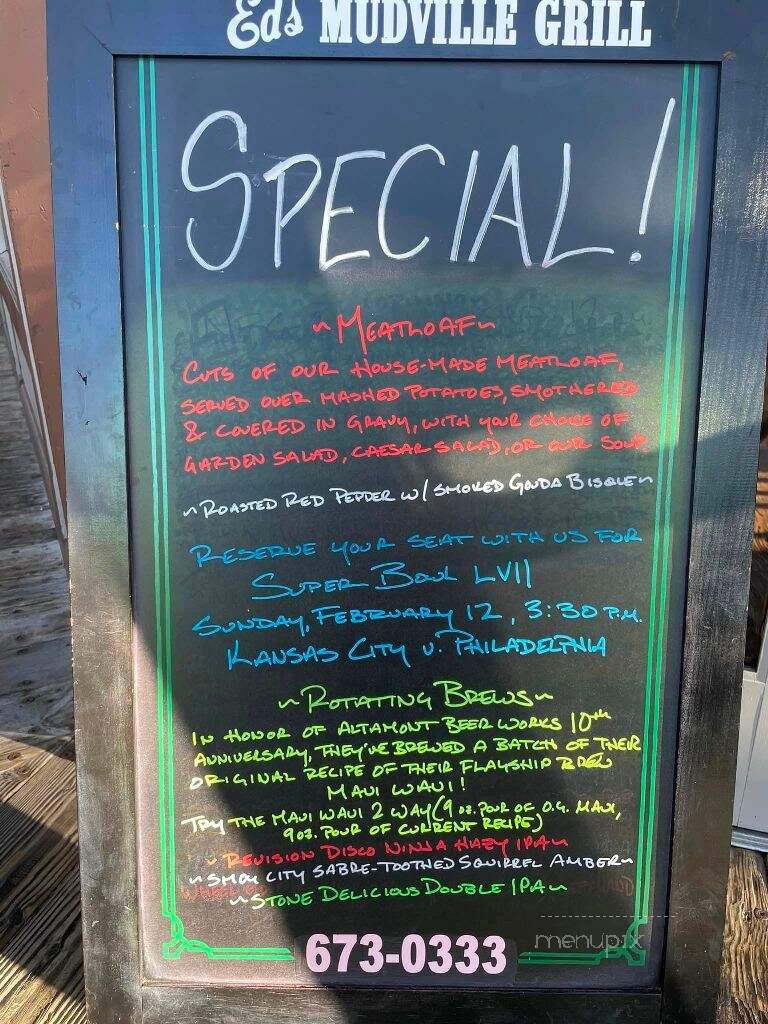 Ed's MUDVILLE GRILL
SPECIAL!
~MEATLOAF~
CUTS OF OUR HOUSE-MADE MEATLOAF,
SERVED OVER MASHED POTATOES, SMOTHERED
& COVERED IN GRAVY, WITH YOUR CHOICE OF
GARDEN SALAD, CAESAR SALAD, OR OUR SOUP
~ROASTED RED PEPPER W/ SMOKED GOUDA BISQUE~
RESERVE YOUR SEAT WITH US FOR
SUPER BOWL LVII
SUNDAY, FEBRUARY 12, 3:30 P.M.
KANSAS CITY V. PHILADELPHIA
~ROTATING BREWS~
IN HONOR OF ALTAMONT BEER WORKS 10th
ANNIVERSARY, THEY'VE BREWED A BATCH OF THEIR
ORIGINAL RECIPE OF THEIR FLAGSHIP BREW
MAUI WAUI!
TRY THE MAUI WAUI 2 WAY (9 oz. POUR OF O.G. MAUI,
9 oz. POUR OF CURRENT RECIPE)
~REVISION DISCO NINJA HAZY IPA~
~SMOG CITY SABRE-TOOTHED SQUIRREL AMBER~
~STONE DELICIOUS DOUBLE IPA~
673-0333
menupix